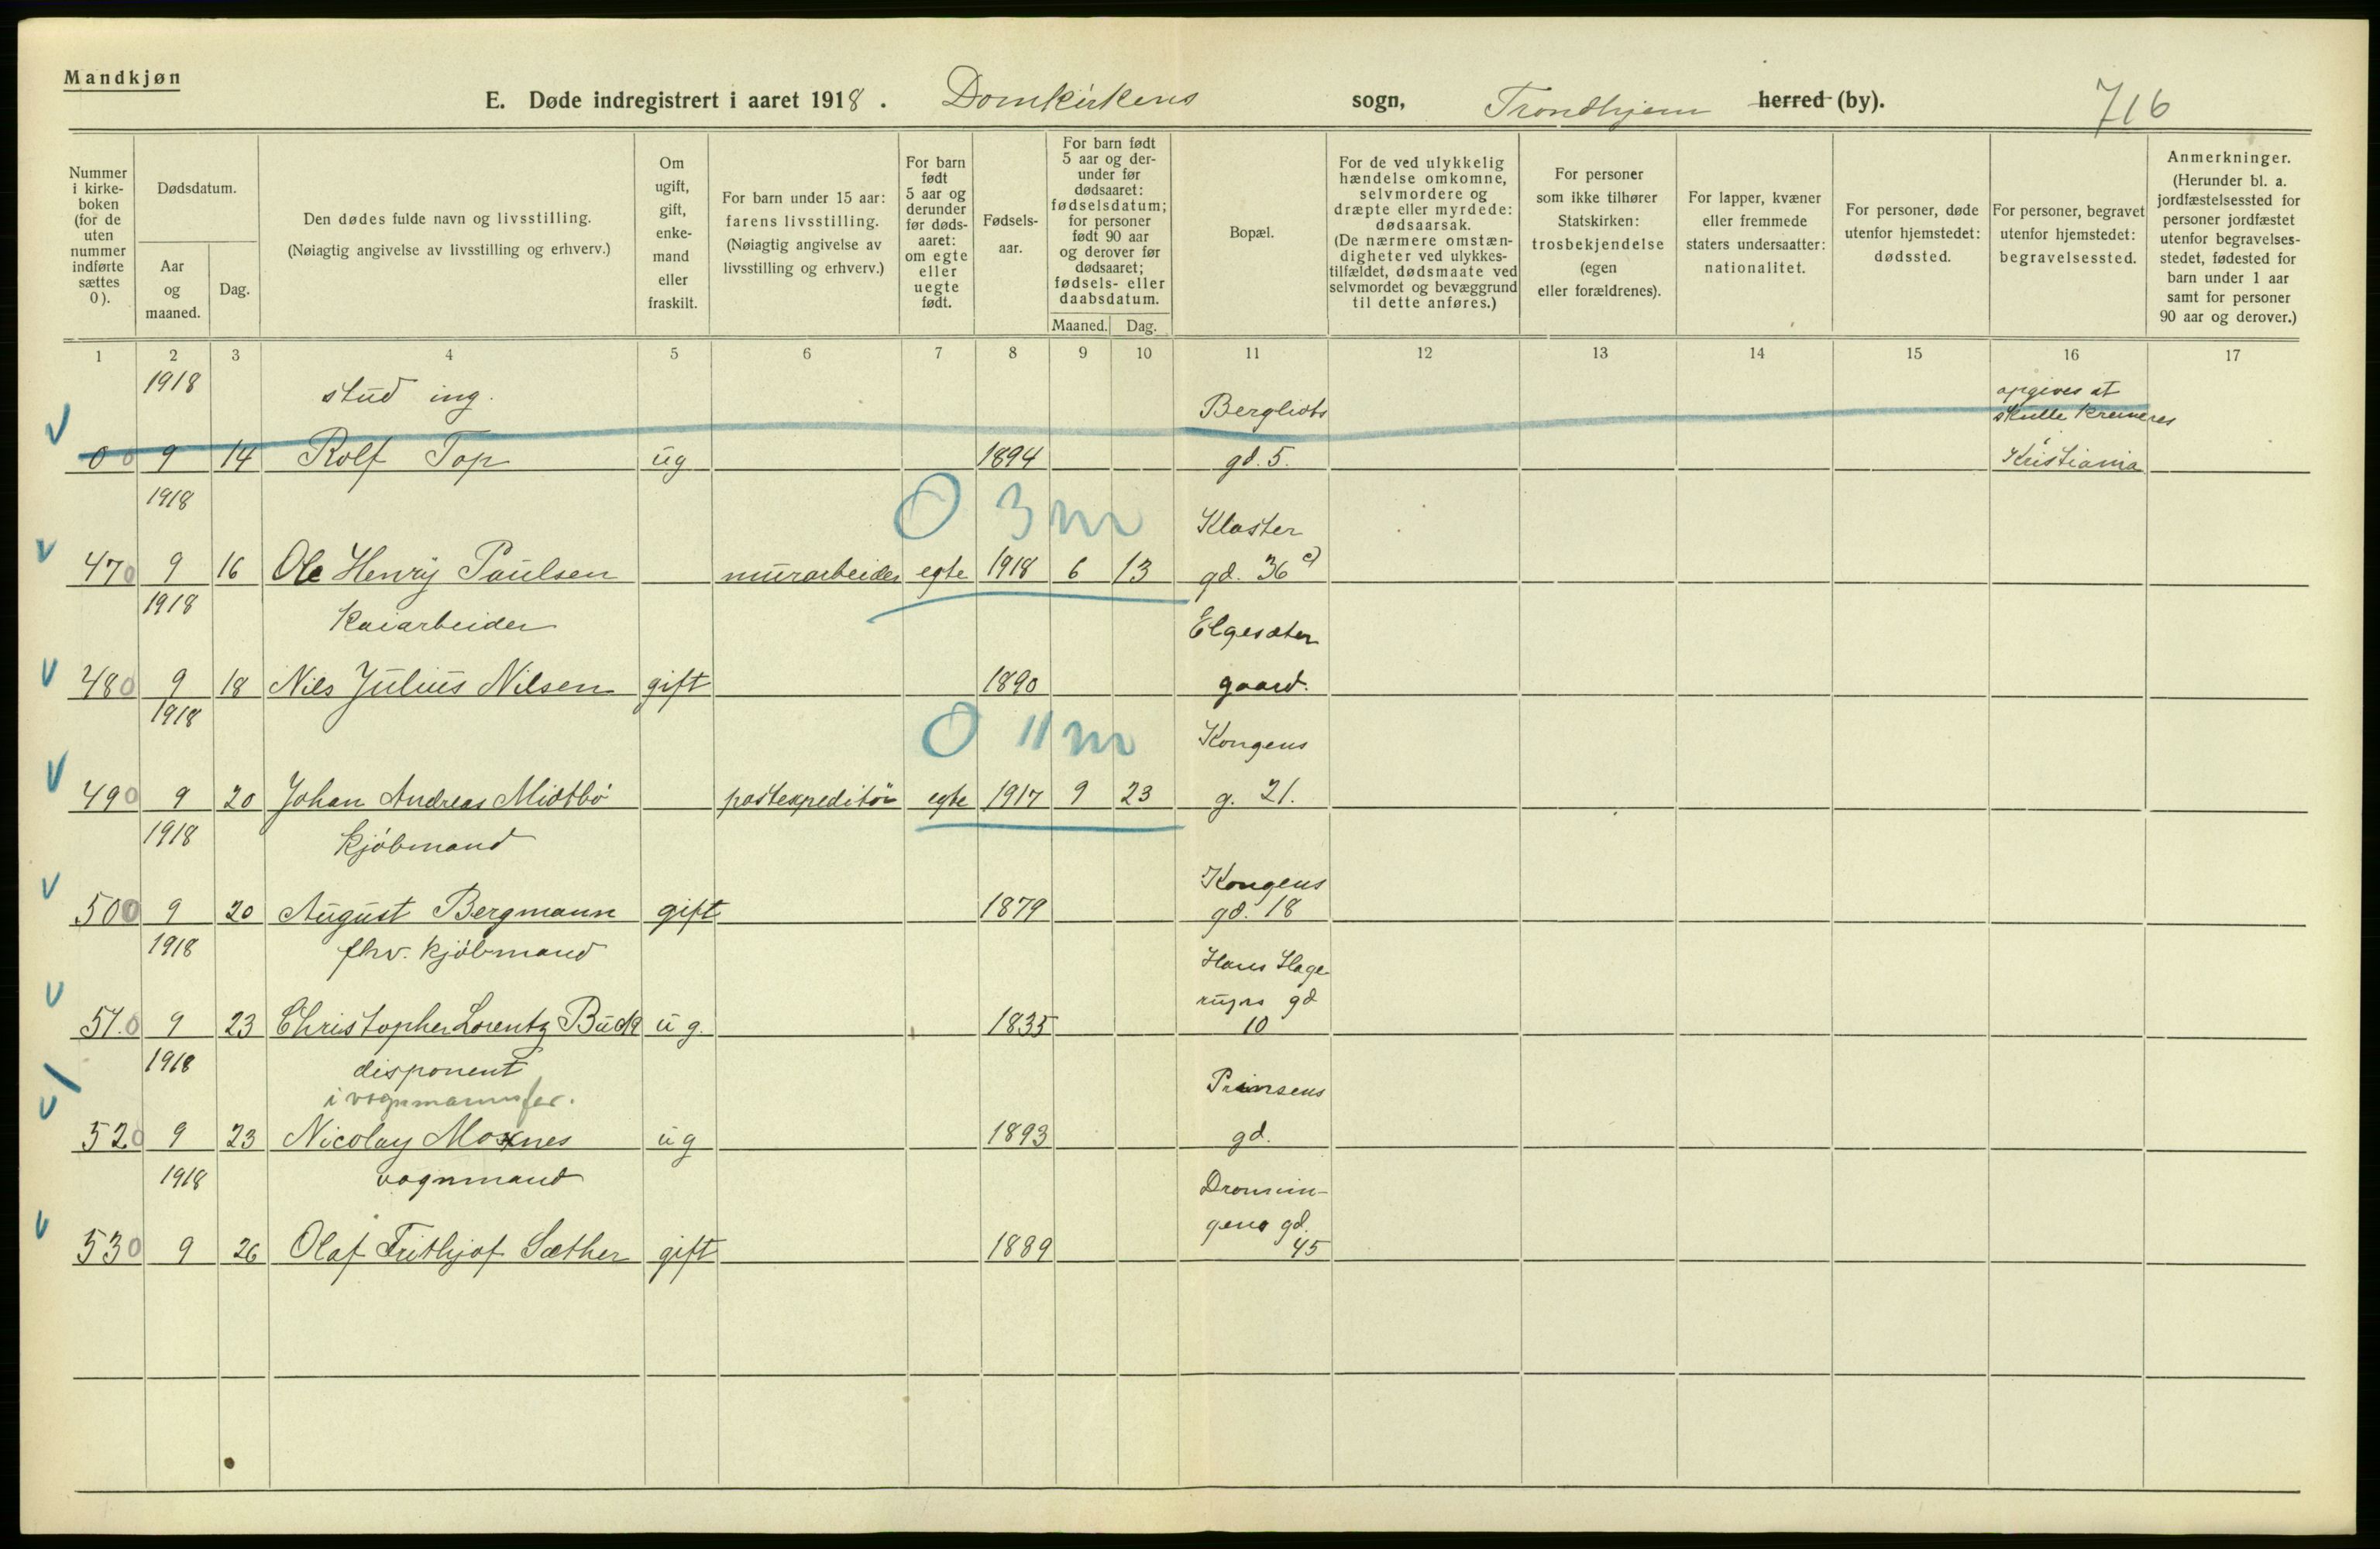 Mandkjøn
E. Døde indregistrert i aaret 1918. Domkirkens sogn, Trondhjem herred (by). 716
Nummer i kirkeboken (for de uten nummer indførte sættes 0).
Dødsdatum.
Aar og maaned.
Dag.
Den dødes fulde navn og livsstilling.
(Nøiagtig angivelse av livsstilling og erhverv.)
Om ugift, gift, enkemand eller fraskilt.
For barn under 15 aar: farens livsstilling.
(Nøiagtig angivelse av livsstilling og erhverv.)
For barn født 5 aar og derunder før dødsaaret: om egte eller uegte født.
Fødselsaar.
For barn født 5 aar og derunder før dødsaaret: fødselsdatum; for personer født 90 aar og derover før dødsaaret; fødsels- eller daabsdatum.
Maaned. Dag.
Bopæl.
For de ved ulykkelig hændelse omkomne, selvmordere og dræpte eller myrdede: dødsaarsak.
(De nærmere omstændigheter ved ulykkestilfældet, dødsmaate ved selvmordet og bevæggrund til dette anføres.)
For personer som ikke tilhører Statskirken: trosbekjendelse (egen eller forældrenes).
For lapper, kvæner eller fremmede staters undersaatter: nationalitet.
For personer, døde utenfor hjemstedet: dødssted.
For personer, begravet utenfor hjemstedet: begravelsessted.
Anmerkninger.
(Herunder bl. a. jordfæstelsessted for personer jordfæstet utenfor begravelsesstedet, fødested for barn under 1 aar samt for personer 90 aar og derover.)
1 2 3 4 5 6 7 8 9 10 11 12 13 14 15 16 17
1918 stud ing. Bergliots opgives at skulle kremeres
0 0 9 14 Rolf Top ug 1894 gd. 5. Kristiania
1918 0 3 m Kloster
470 9 16 Ole Henry Paulsen murarbeider egte 1918 6 13 gd. 36 c)
1918 Kaiarbeider Elgesæter
480 9 18 Nils Julius Nilsen gift 1890 gaard.
1918 0 11 m Kongens
490 9 20 Johan Andreas Midtbö postexpeditör egte 1917 9 23 g. 21.
1918 Kjöbmand Kongens
500 9 20 August Bergmann gift 1879 gd. 18
1918 fhv. kjöbmand Hans Hagerups gd
51.0 9 23 Christopher Lorentz Buck ug. 1835 10
1918 disponent
i vognmannsfor. Prinsens
520 9 23 Nicolay Moxnes ug 1893 gd.
1918 vognmand Dronningens gd.
530 9 26 Olaf Frithjof Sæther gift 1889 45